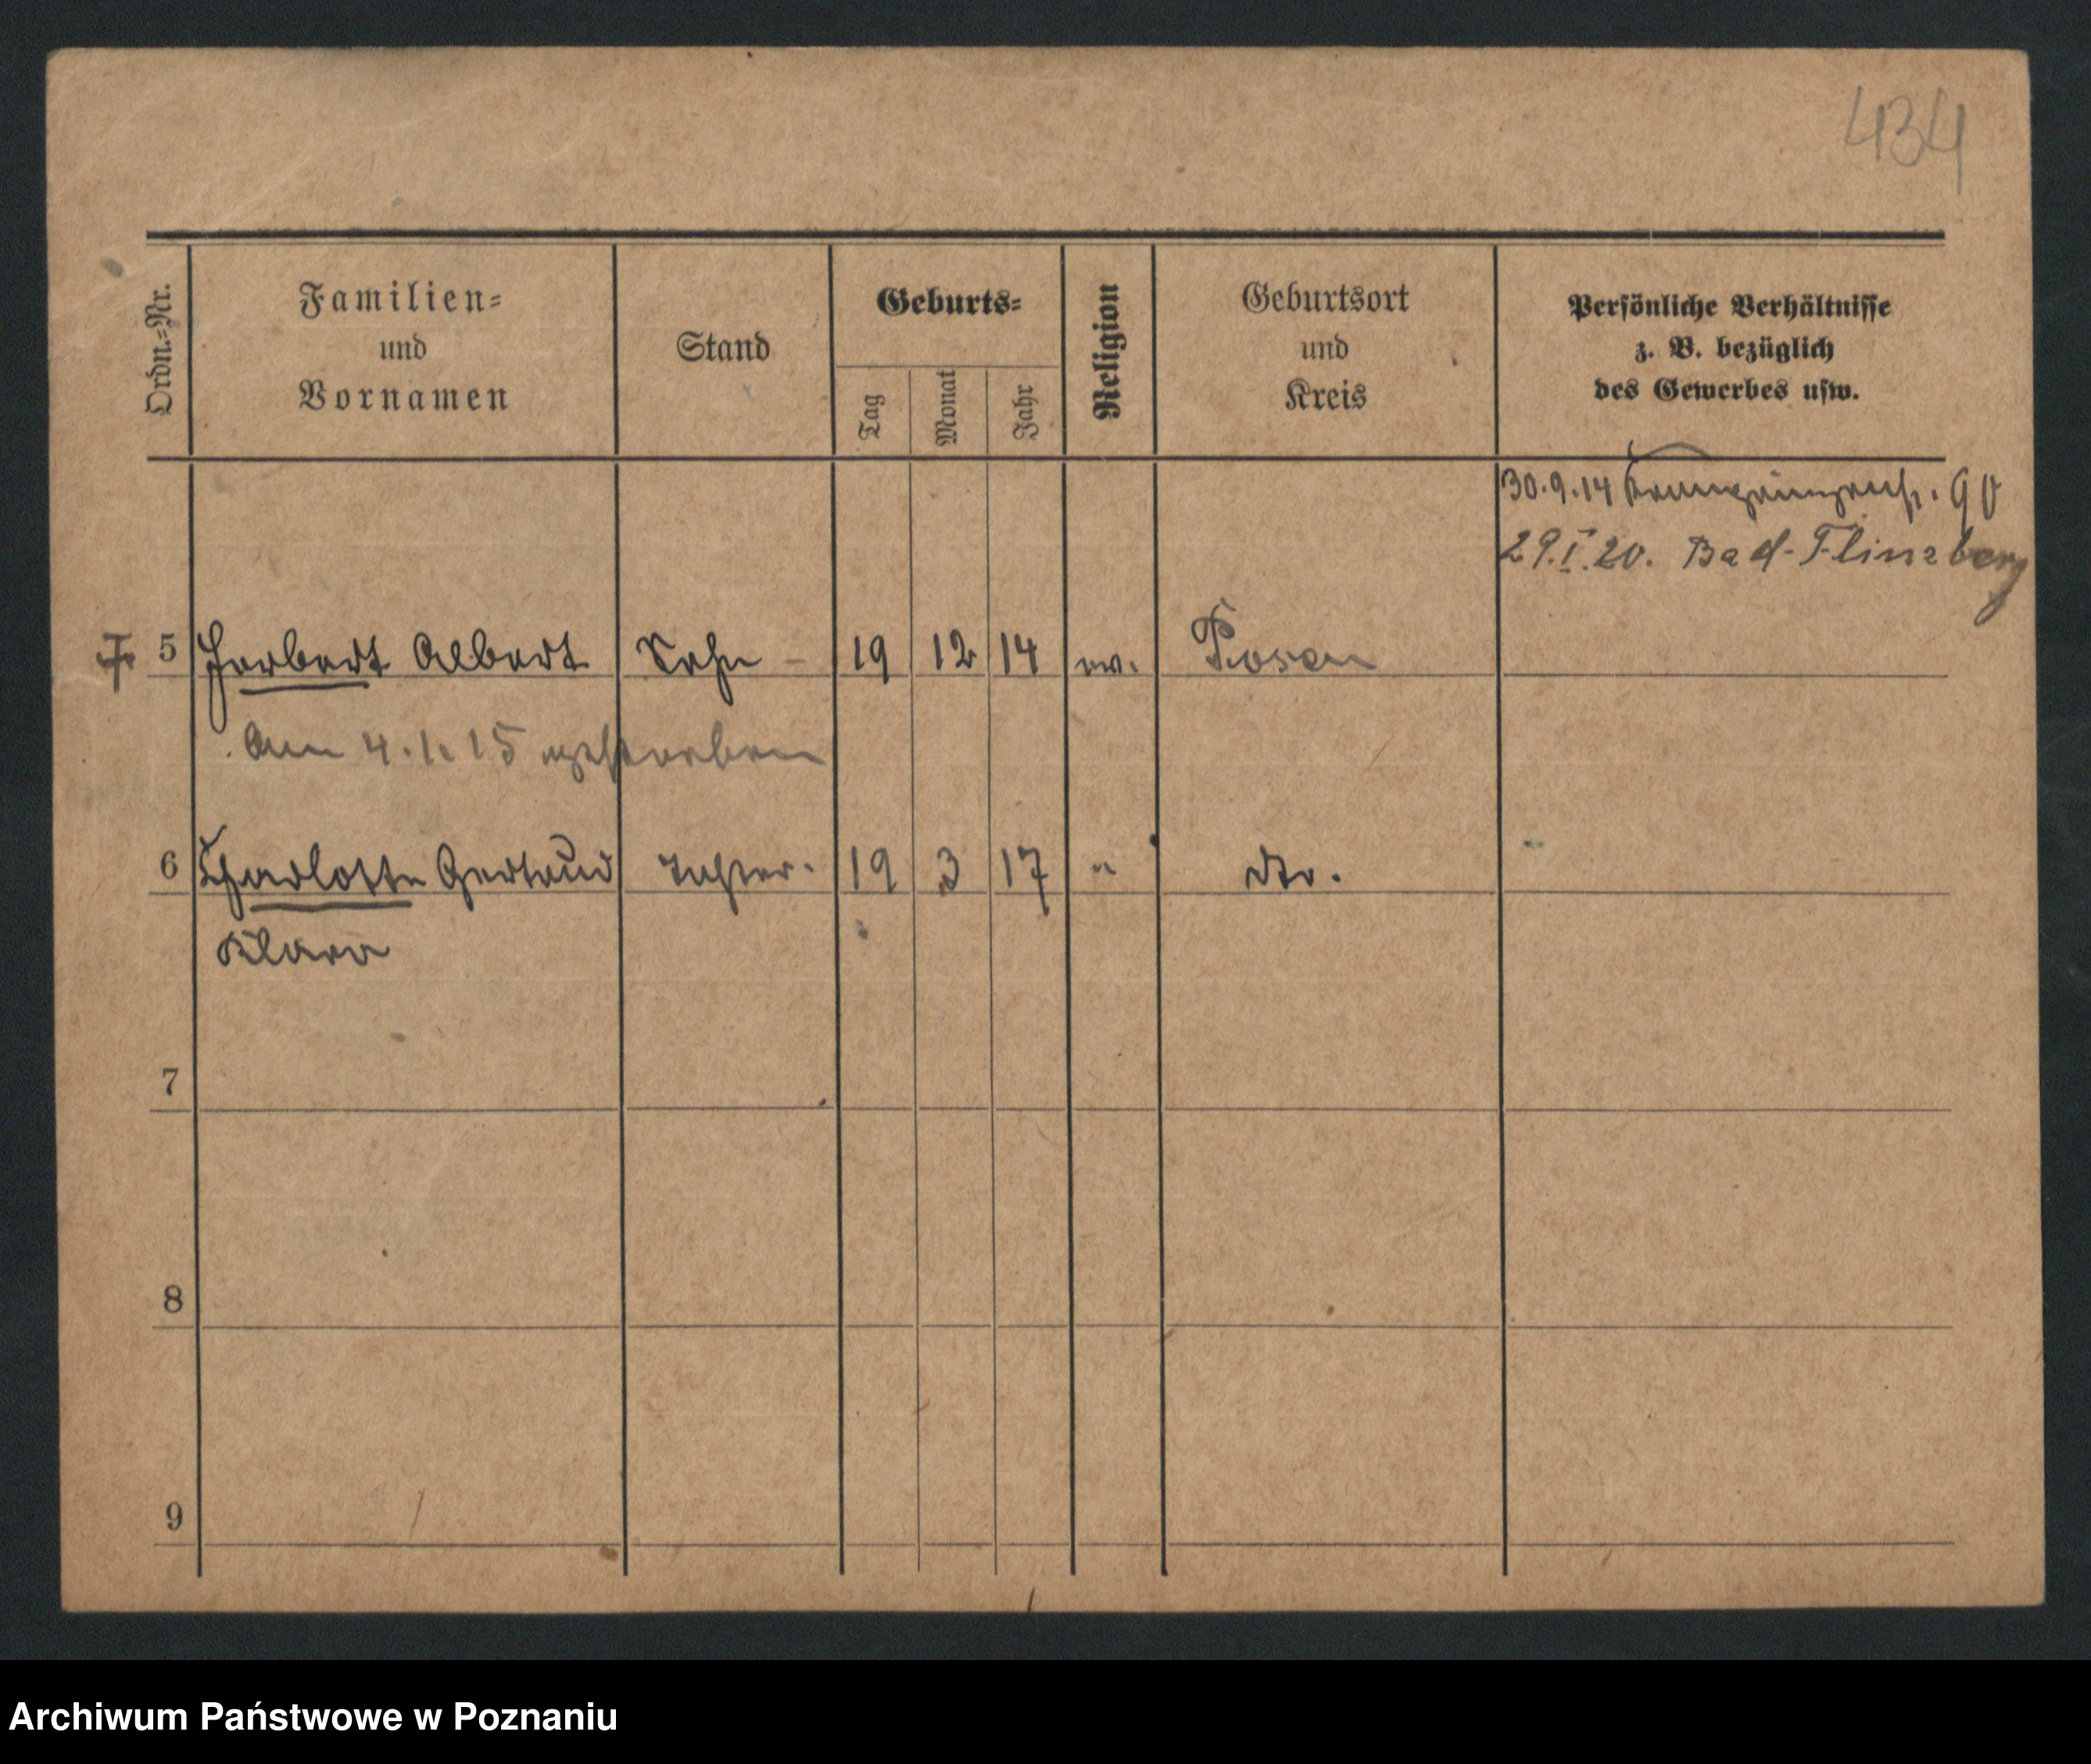 434
Ordn.-Nr.
Familien-
und
Vornamen
Stand
Geburts-
Tag
Monat
Jahr
Religion
Geburtsort
und
Kreis
Persönliche Verhältnisse
z. B. bezüglich
des Gewerbes usw.
30.9.14 90
29.I.20. Bad-Flinsberg
5 Herbert Albert Sohn 19 12 14 ev. Posen
Am 4.1.15 gestorben
6 Charlotte Gertrud Tochter. 19 3 17 " dto.
Klara
7
8
9
Archiwum Państwowe w Poznaniu